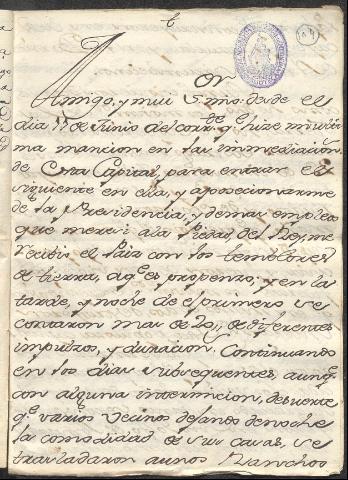 or
Amigo, y mui S. mio: desde el
dia 17 de Junio del corr.te q.e hize mi ulti
ma mancion en las inmediacion.s
de Esta Capital, para entrar el
siguiente en ella, y aposecionarme
de la Presidencia, y demas empleos
que mereci ala Piedad del Rey, me
recibió el Pais con los temblores
de tierra, aq.e es propenzo; y en la
tarde, y noche de el primero se
contaron mas de 20,, de diferentes
impulzos, y duracion. Continuando
en los dias subsequentes, aunq.e
con alguna intermicion, desuerte
q.e varios Vecinos dejando de noche
la comodidad de sus casas, se
trasladaron aunos Ranchos